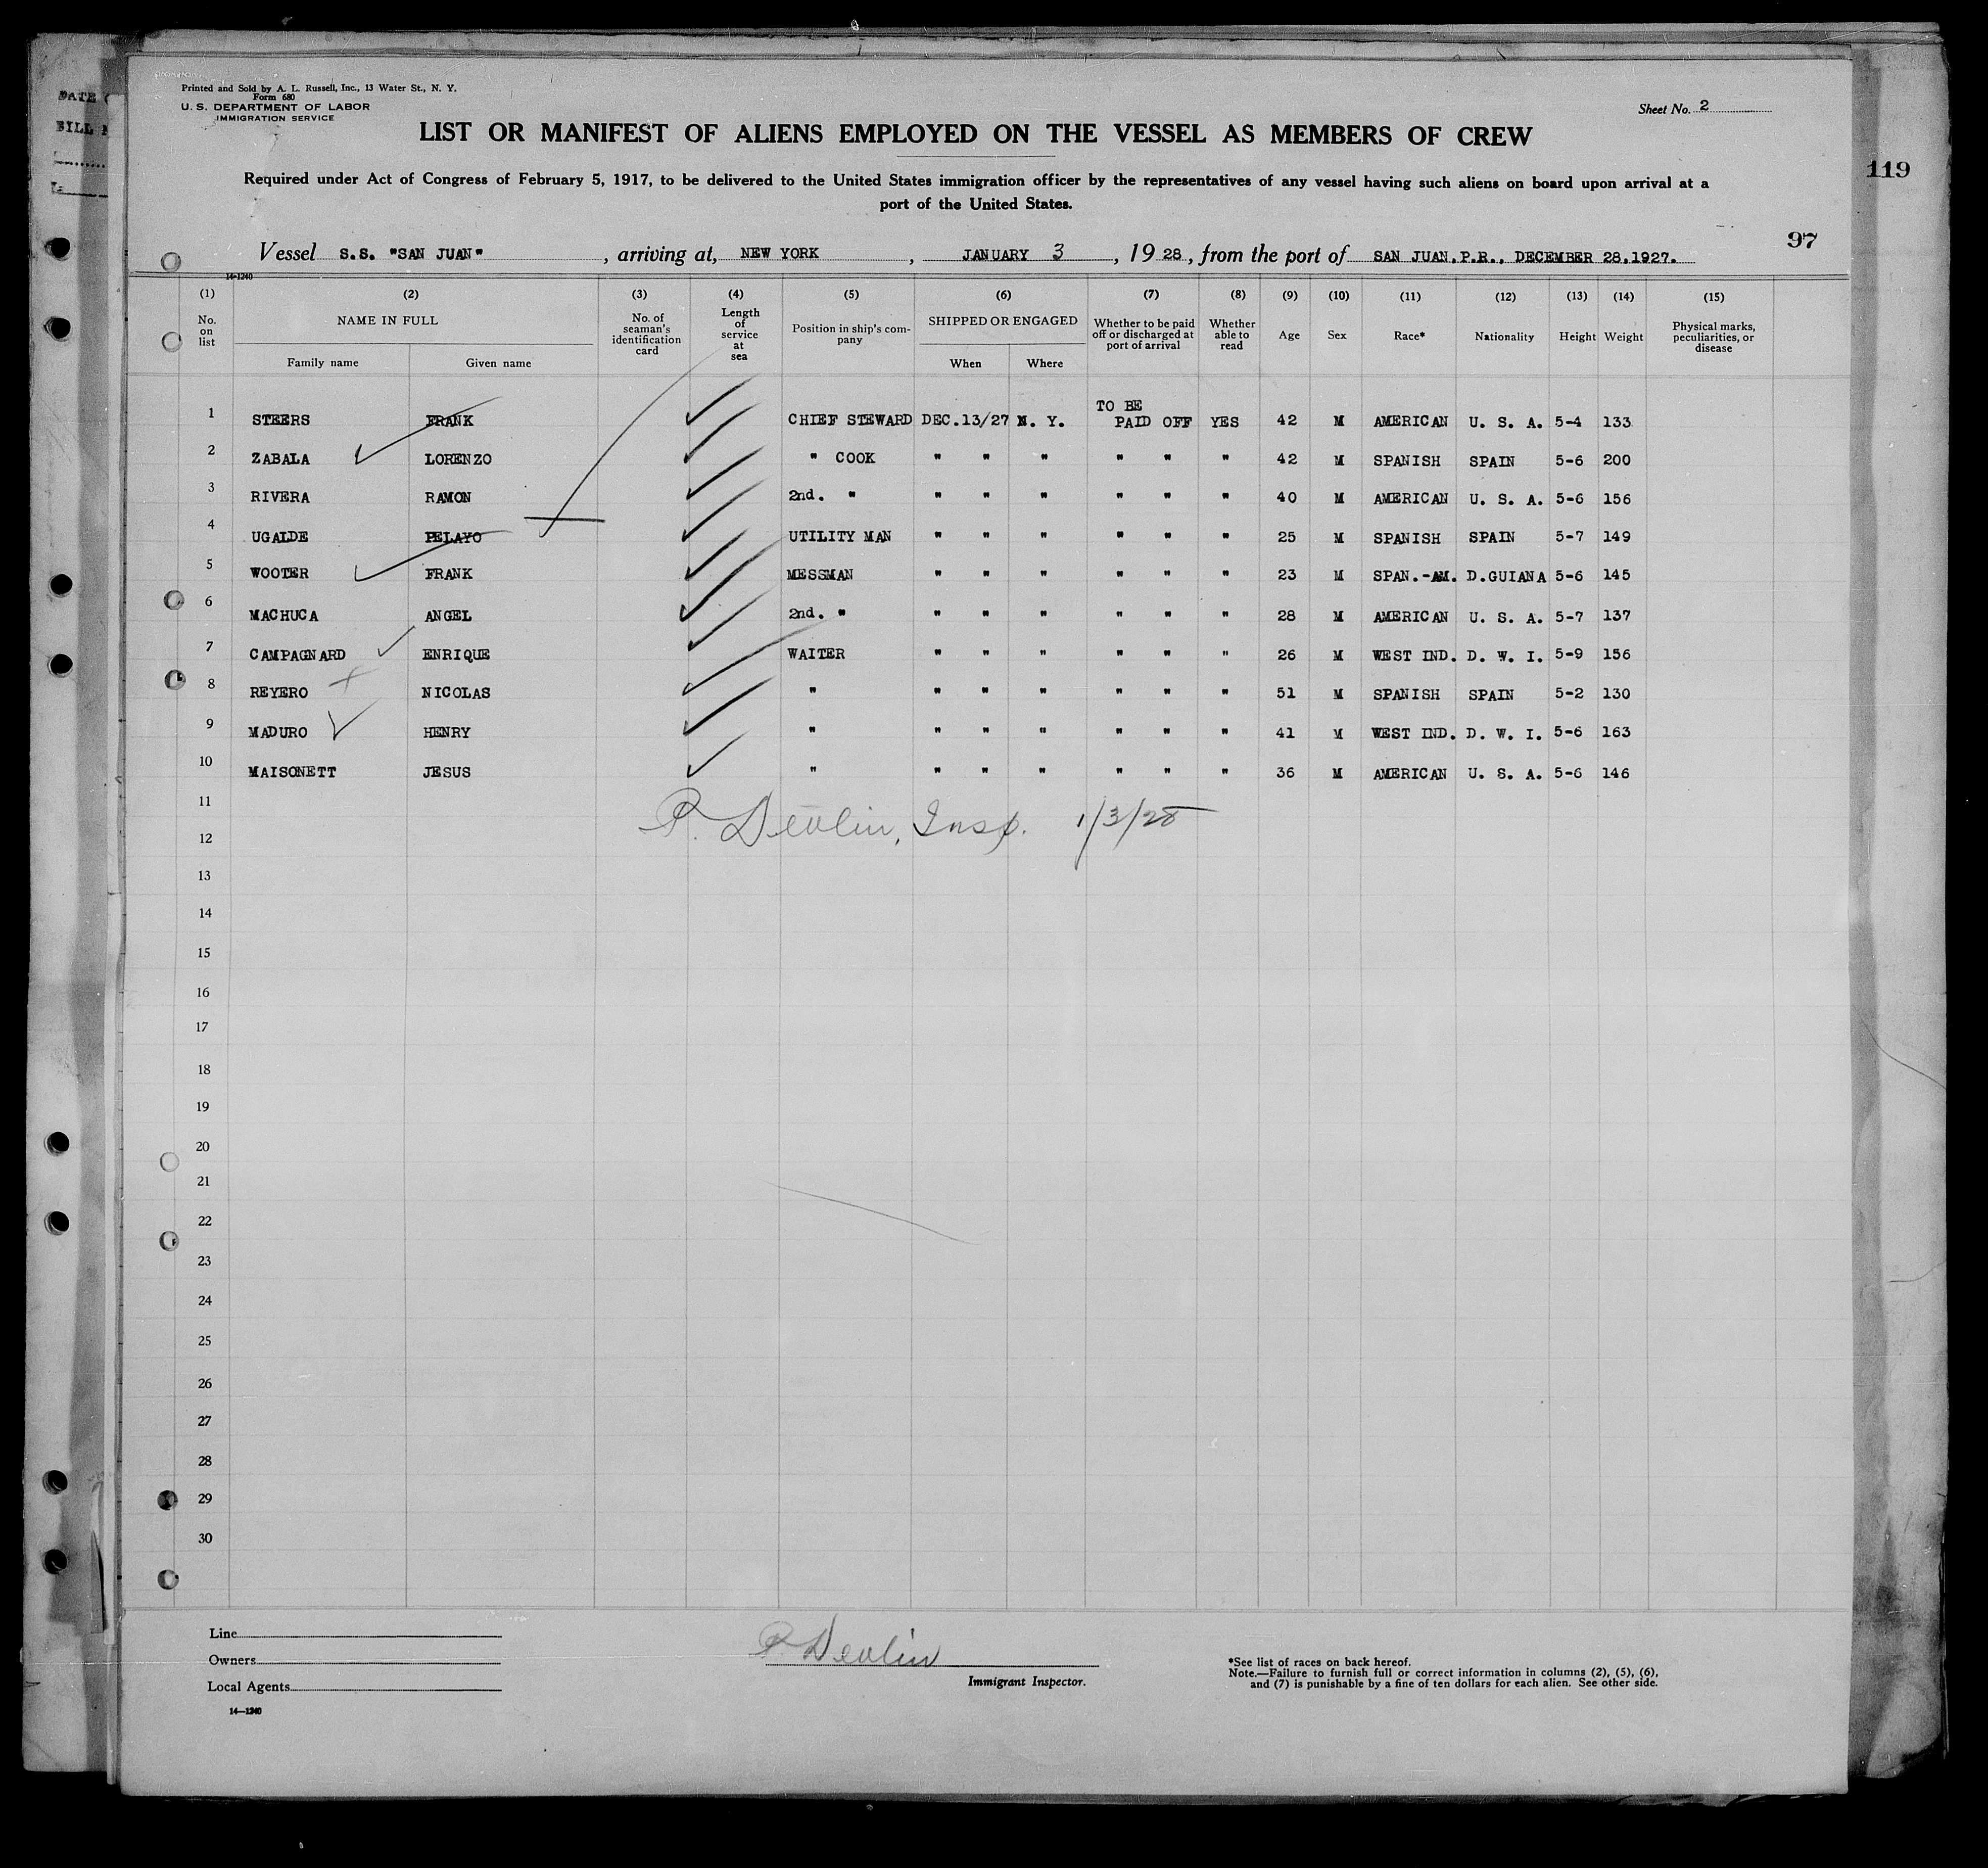 Printed and Sold by A. L. Russell, Inc., 13 Water St., N. Y.
Form 680
U. S. DEPARTMENT OF LABOR
IMMIGRATION SERVICE
Sheet No. 2
LIST OR MANIFEST OF ALIENS EMPLOYED ON THE VESSEL AS MEMBERS OF CREW
119
Required under Act of Congress of February 5, 1917, to be delivered to the United States immigration officer by the representatives of any vessel having such aliens on board upon arrival at a
port of the United States.
97
Vessel S.S. "SAN JUAN", arriving at, NEW YORK, JANUARY 3, 1928, from the port of SAN JUAN,P.R., DECEMBER 28,1927.
14-1240
(1) (2) (3) (4) (5) (6) (7) (8) (9) (10) (11) (12) (13) (14) (15)
No. on list NAME IN FULL Family name Given name No. of seaman's identification card Length of service at sea Position in ship's company SHIPPED OR ENGAGED When Where Whether to be paid off or discharged at port of arrival Whether able to read Age Sex Race* Nationality Height Weight Physical marks, peculiarities, or disease
1 STEERS FRANK CHIEF STEWARD DEC.13/27 N. Y. TO BE PAID OFF YES 42 M AMERICAN U. S. A. 5-4 133
2 ZABALA LORENZO " COOK " " " " " " 42 M SPANISH SPAIN 5-6 200
3 RIVERA RAMON 2nd. " " " " " " " 40 M AMERICAN U. S. A. 5-6 156
4 UGALDE PELAYO UTILITY MAN " " " " " " 25 M SPANISH SPAIN 5-7 149
5 WOOTER FRANK MESSMAN " " " " " " 23 M SPAN.-AM. D.GUIANA 5-6 145
6 MACHUCA ANGEL 2nd. " " " " " " " 28 M AMERICAN U. S. A. 5-7 137
7 CAMPAGNARD ENRIQUE WAITER " " " " " " 26 M WEST IND. D. W. I. 5-9 156
8 REYERO NICOLAS " " " " " " " 51 M SPANISH SPAIN 5-2 130
9 MADURO HENRY " " " " " " " 41 M WEST IND. D. W. I. 5-6 163
10 MAISONETT JESUS " " " " " " " 36 M AMERICAN U. S. A. 5-6 146
11
P. Devlin, Insp. 1/3/28
12
13
14
15
16
17
18
19
20
21
22
23
24
25
26
27
28
29
30
Line
Owners
Local Agents
14—1240
P Devlin
Immigrant Inspector.
*See list of races on back hereof.
Note.—Failure to furnish full or correct information in columns (2), (5), (6),
and (7) is punishable by a fine of ten dollars for each alien. See other side.